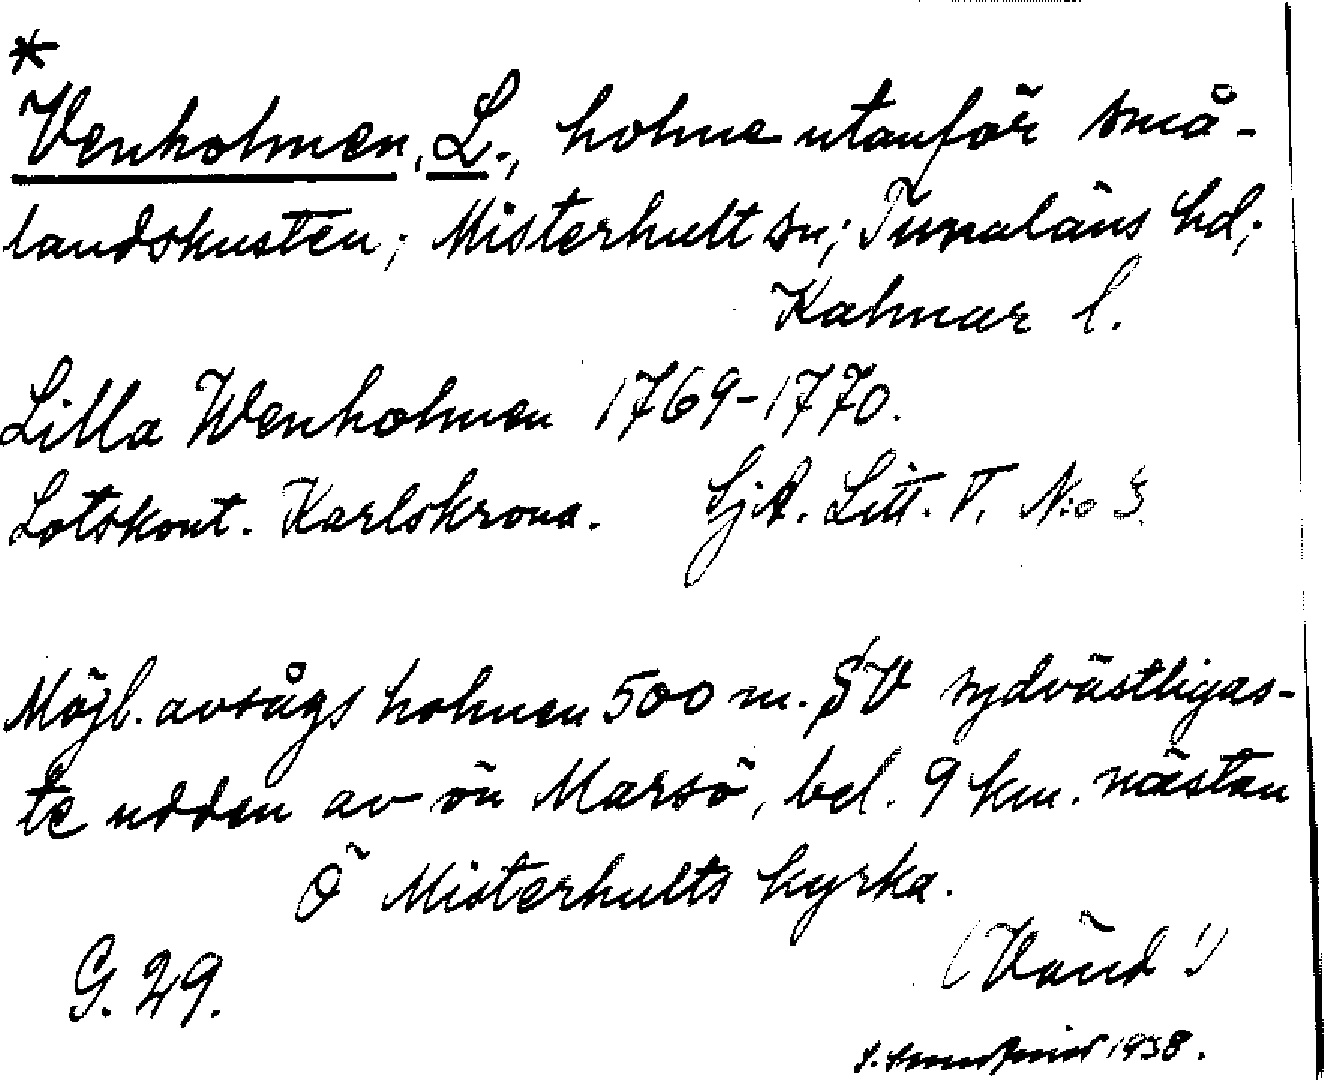 *
Venholmen, L., holme utanför små-
landskusten; Misterhult sn; Tunaläns hd;
Kalmar l.
Lilla Wenholmen 1769-1770.
Lotskont. Karlskrona. SjA. Litt. T. No 3.
Möjl. avsågs holmen 500 m. SV sydvästligas-
te udden av ön Marsö, bel. 9 km. nästan
Ö Misterhults kyrka.
(Vänd!)
G. 29.
1938.